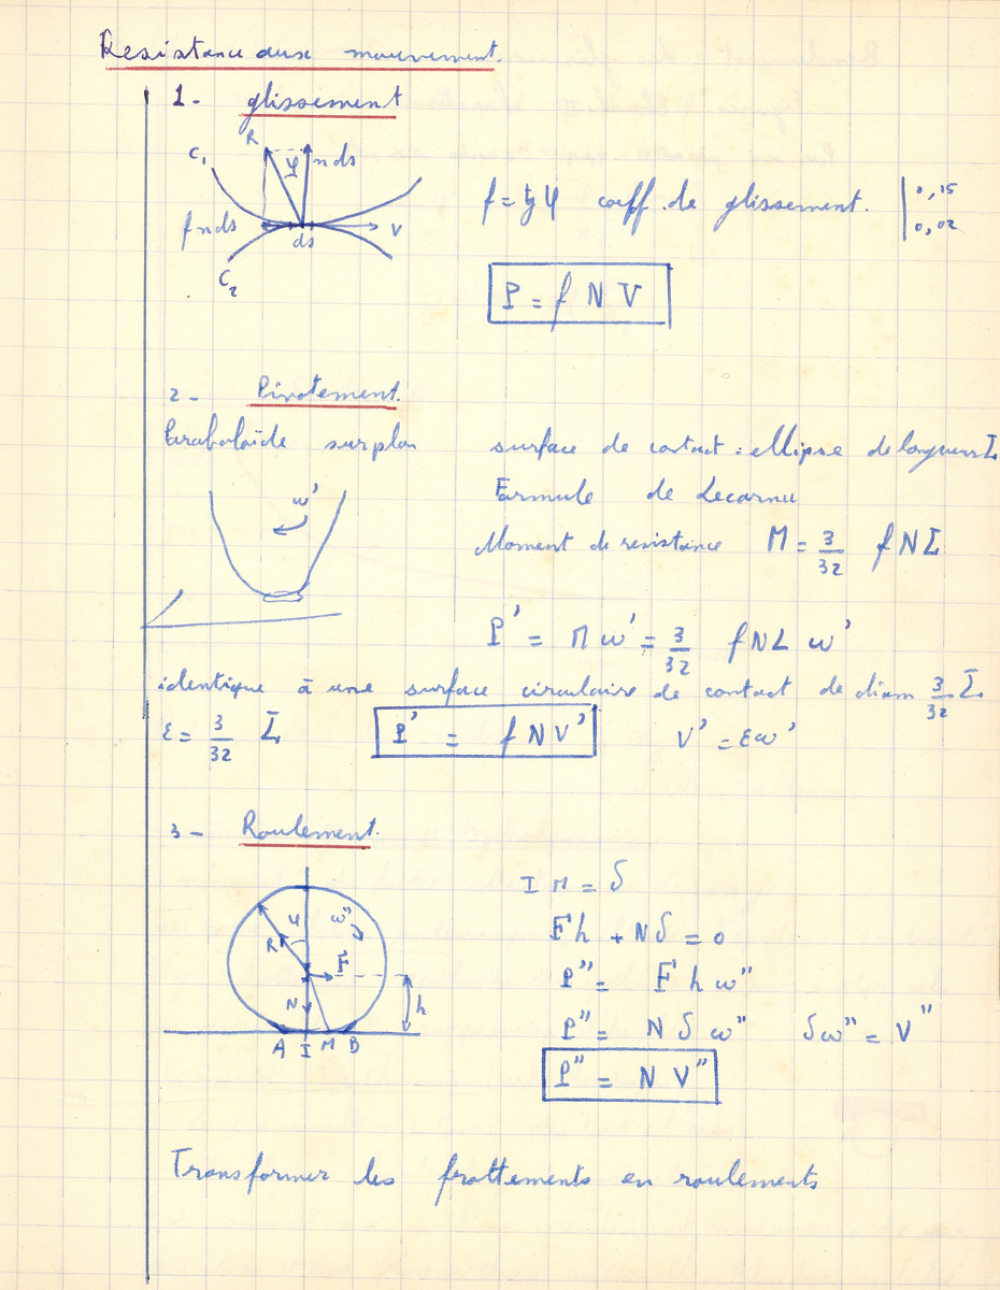 Resistance aux mouvement.
1- glissement
C1 R φ n ds
f n ds ds V
C2
f = tg φ coeff. de glissement. | 0,15
0,02
P = f N V
2- Pivotement.
Paraboloïde sur plan
surface de contact : ellipse de longueur L
Formule de Lecornu
ω'
Moment de resistance M = 3/32 f N L
P' = M ω' = 3/32 f N L ω'
identique à une surface circulaire de contact de diam 3/32 L
ε = 3/32 L
P' = f N V'
V' = ε ω'
3- Roulement.
φ ω" R F N h
A I M B
I M = δ
F h + N δ = 0
P" = F h ω"
P" = N δ ω" δω" = V"
P" = N V"
Transformer les frottements en roulements